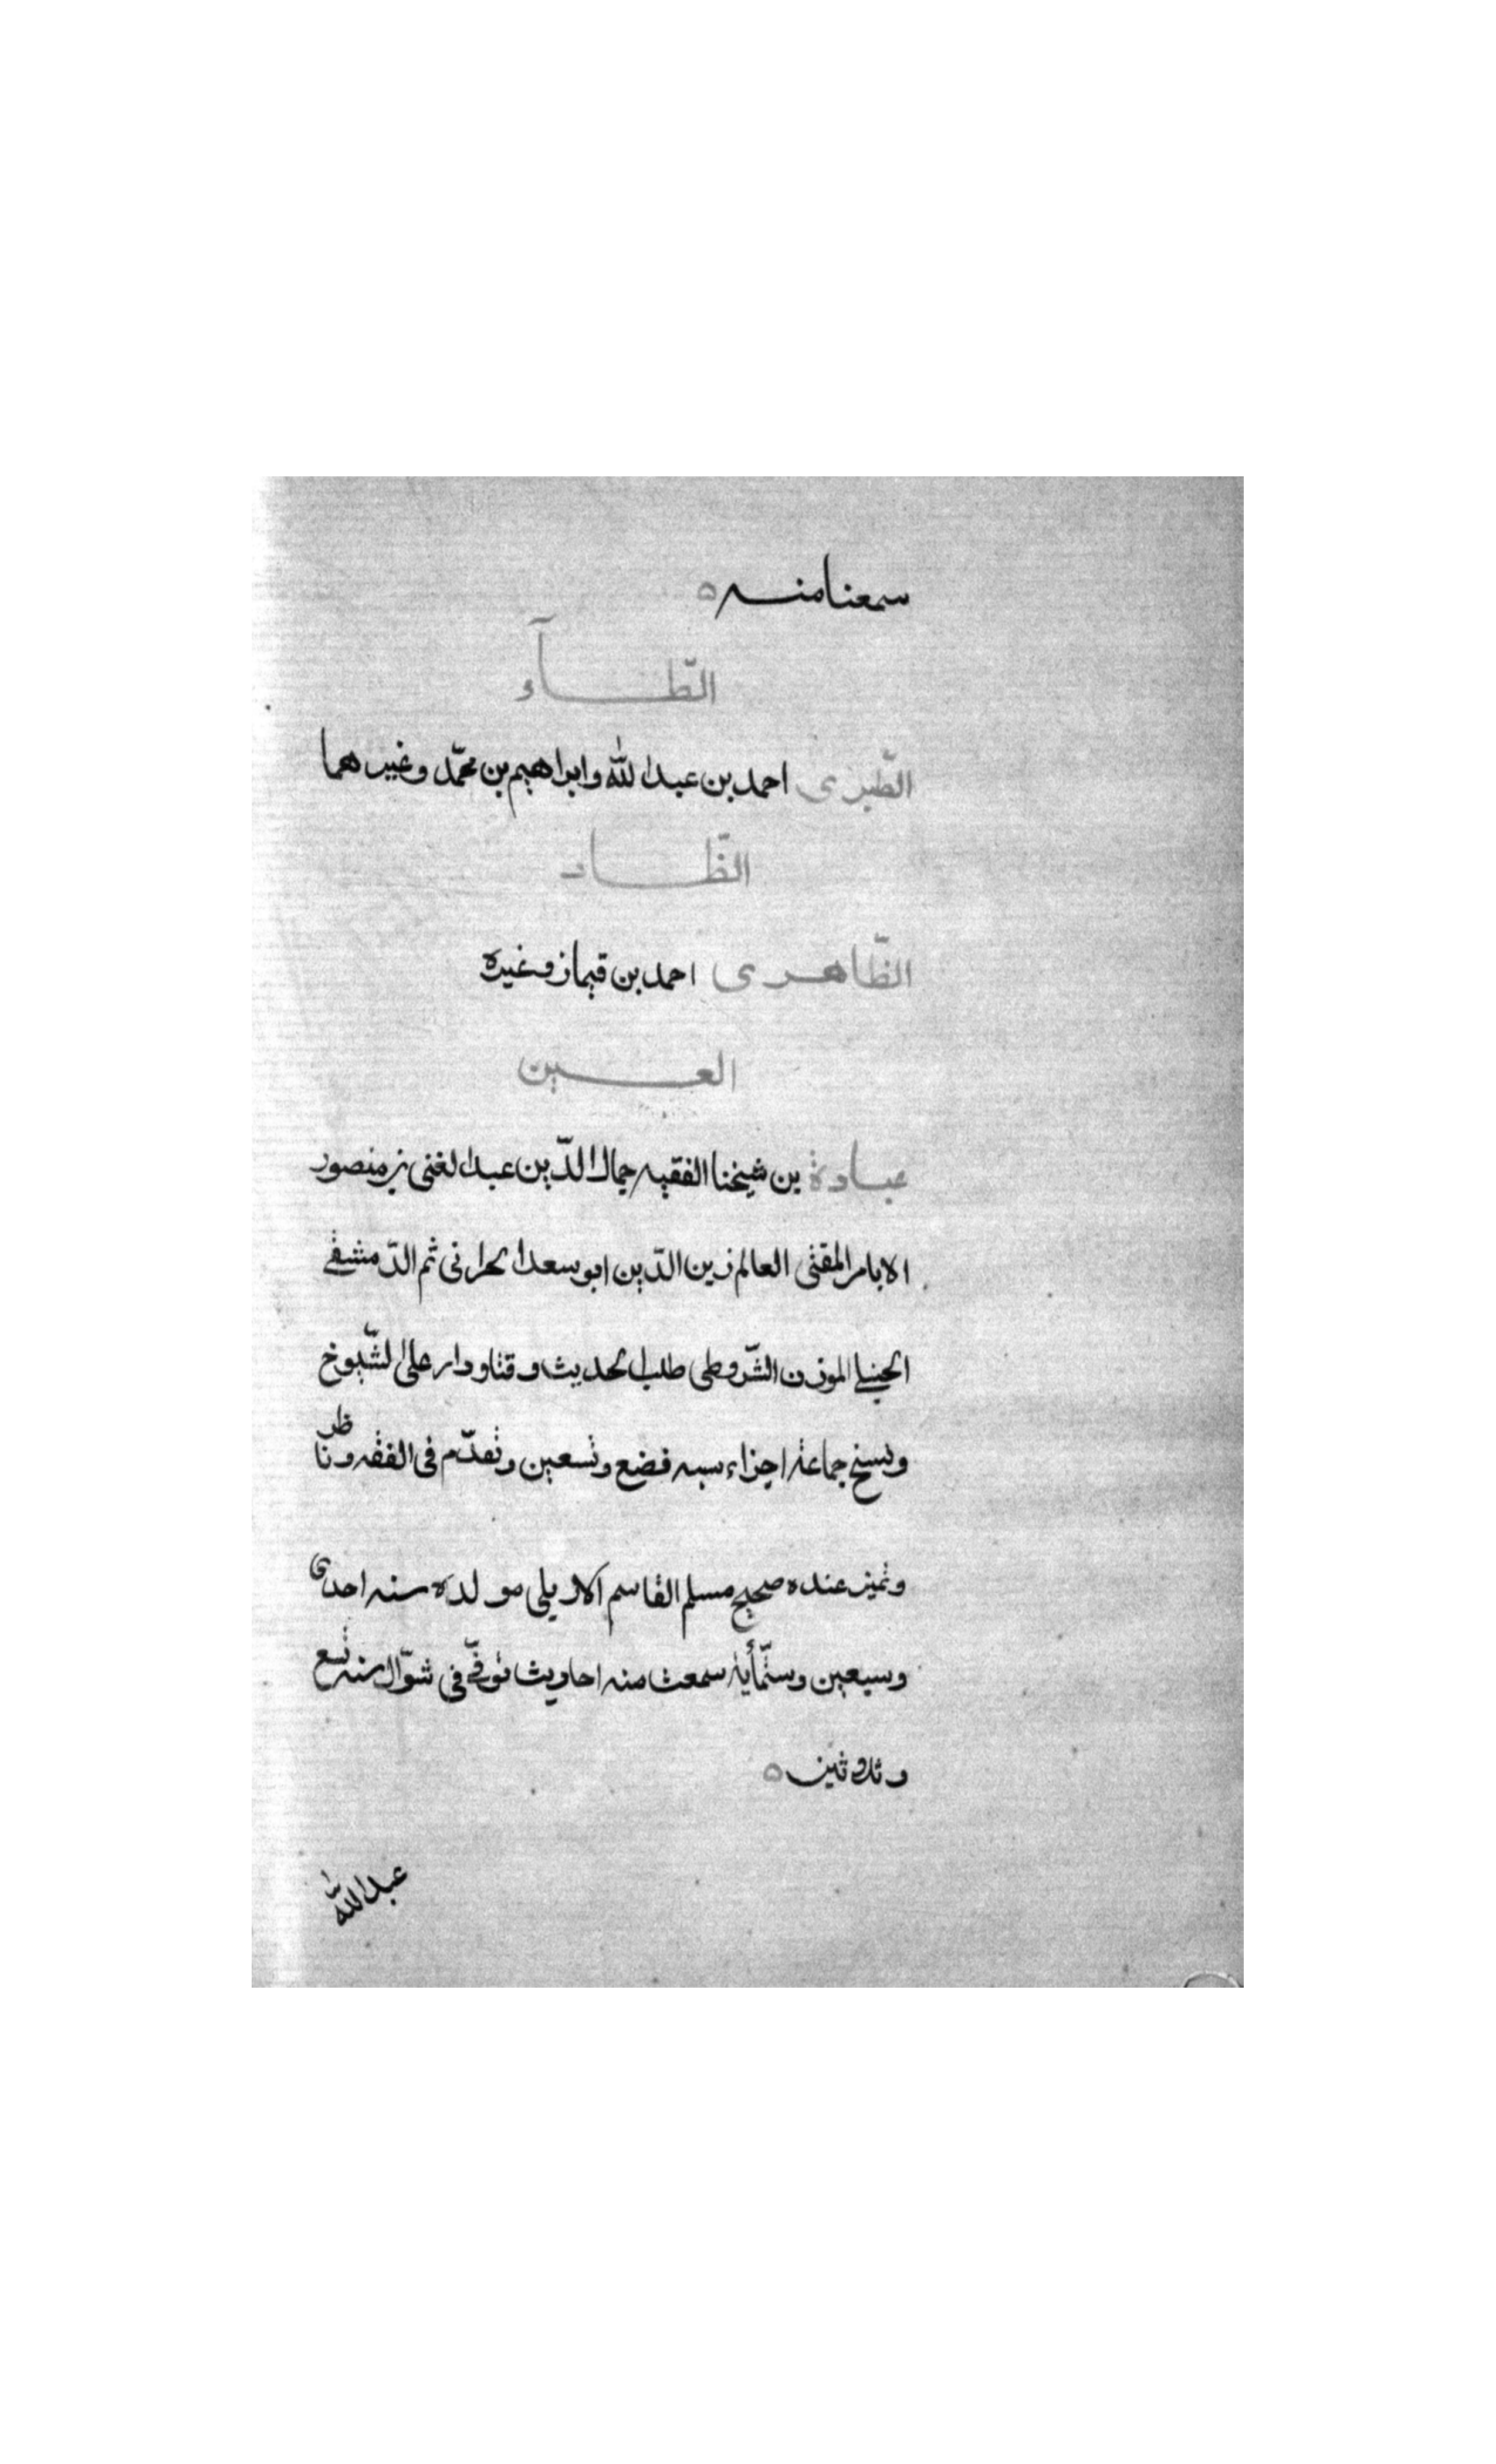 سمعنا منه ه
الطّآء
الطّبرى احمد بن عبد الله وابراهيم بن محمّد وغيرهما
الظّاء
الظّاهرى احمد بن قيماز وغيره
العين
عبادة بن شيخنا الفقيه جمال الدّين عبد الغنى بن منصور
الامام المفتى العالم زين الدّين ابو سعد الحرانى ثم الدّمشقى
الحنبلى الموذن الشّروطى طلب الحديث وقتا ودار على الشّيوخ
ونسخ جماعة اجزاء سنه بضع وتسعين وتقدّم فى الفقه وناظر
وتميز عنده صحيح مسلم القاسم الاربلى مولده سنه احدى
وسبعين وستّمأية سمعت منه احاديث توفّى فى شوّال سنه تسع
وثلاثين ه
عبد الله